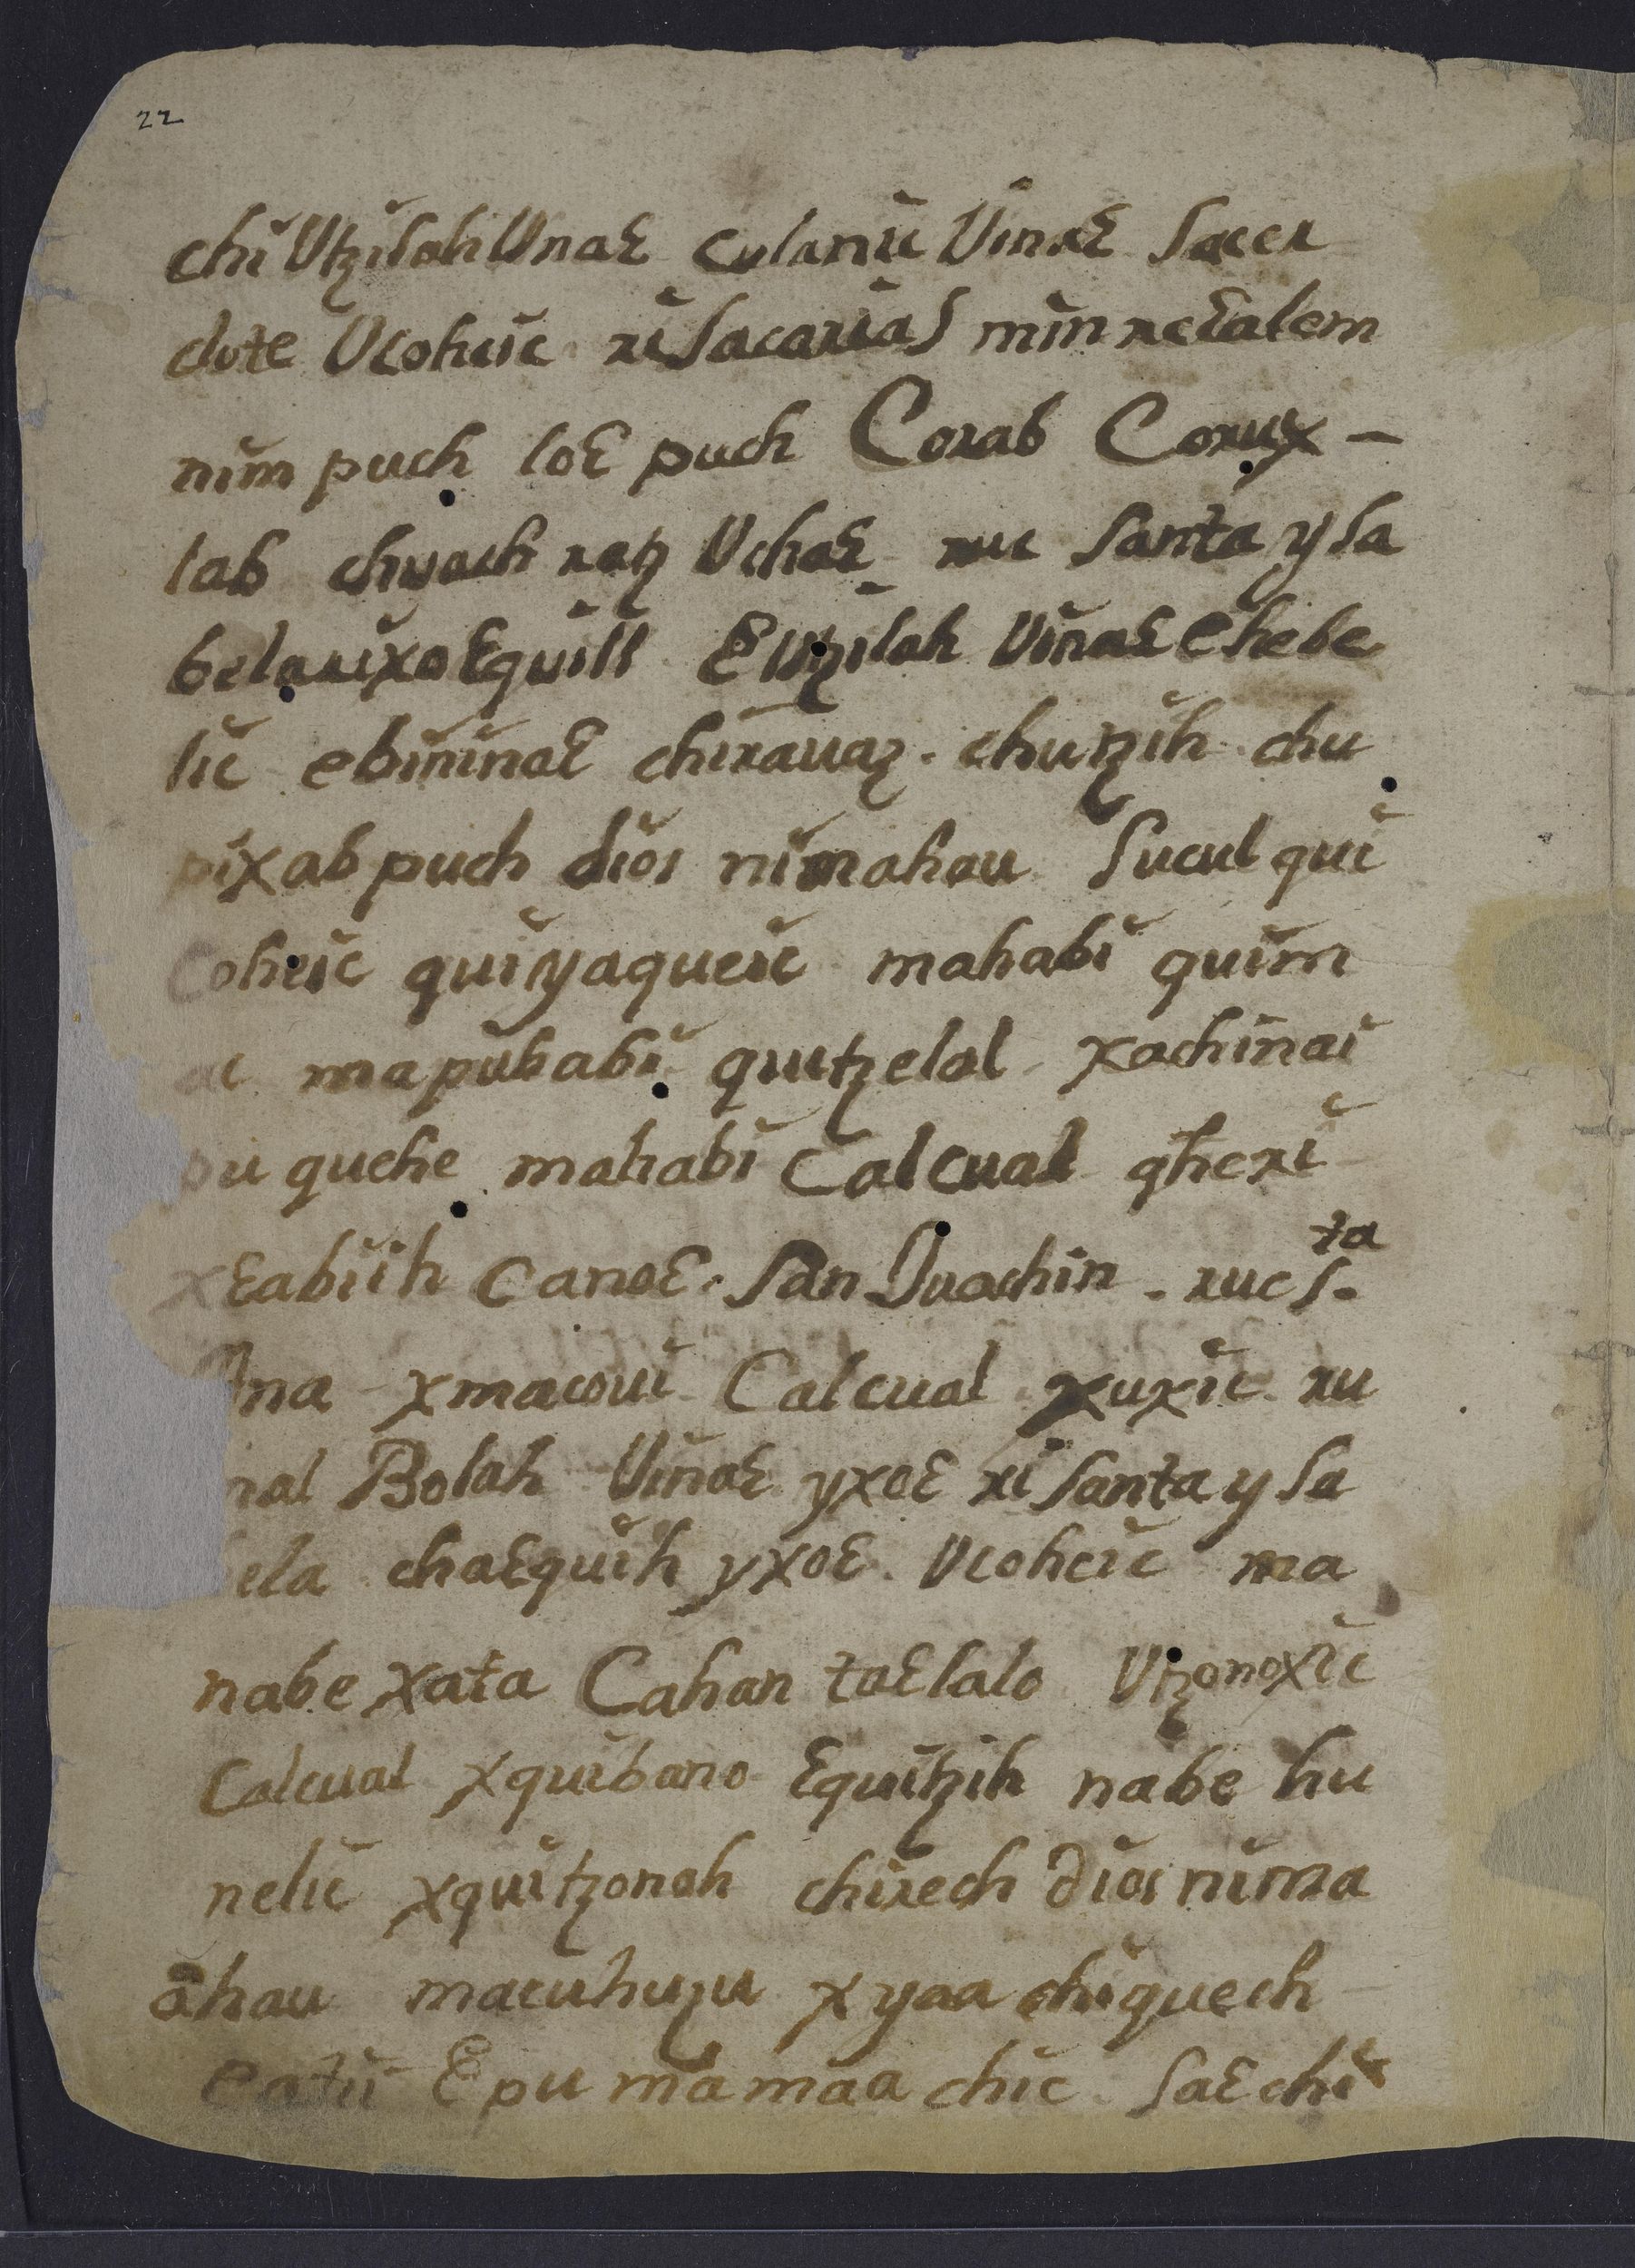 22
chi Utzilah Unaɛ culanic Vinaɛ Sacer
dote Ucoheic ri Sacarias mim reɛalem
nim puch loɛ puch Corab Corux -
lab chuach ratz Uchaɛ ruc Santa ysa
bela uixoɛquill E Utzilah Vinaɛ Ehebe
lic ebininaɛ chirauaz. chutzih chu
pixab puch dios nimahau Sucul qui
Coheic quiyaqueic mahabi quim
ac mapuhabi quitzelal xachinai
pu quehe mahabi Calcual qheri
xɛabiih canoɛ. San Juachin. ruc S.ta
Ana xmacoui Calcual xuxic ru
nal Bolah Vinaɛ yxoɛ ri Santa ysa
ela chaɛquih yxoɛ. Ucoheic ma
nabe xata Cahan taɛlalo Utzonoxic
Calcual xquibano ɛquitzih nabe hu
nelic xquitzonoh chirech dios nima
ahau macuhuzu xyaa chiquech
catii E pu mamaa chic Saɛchi